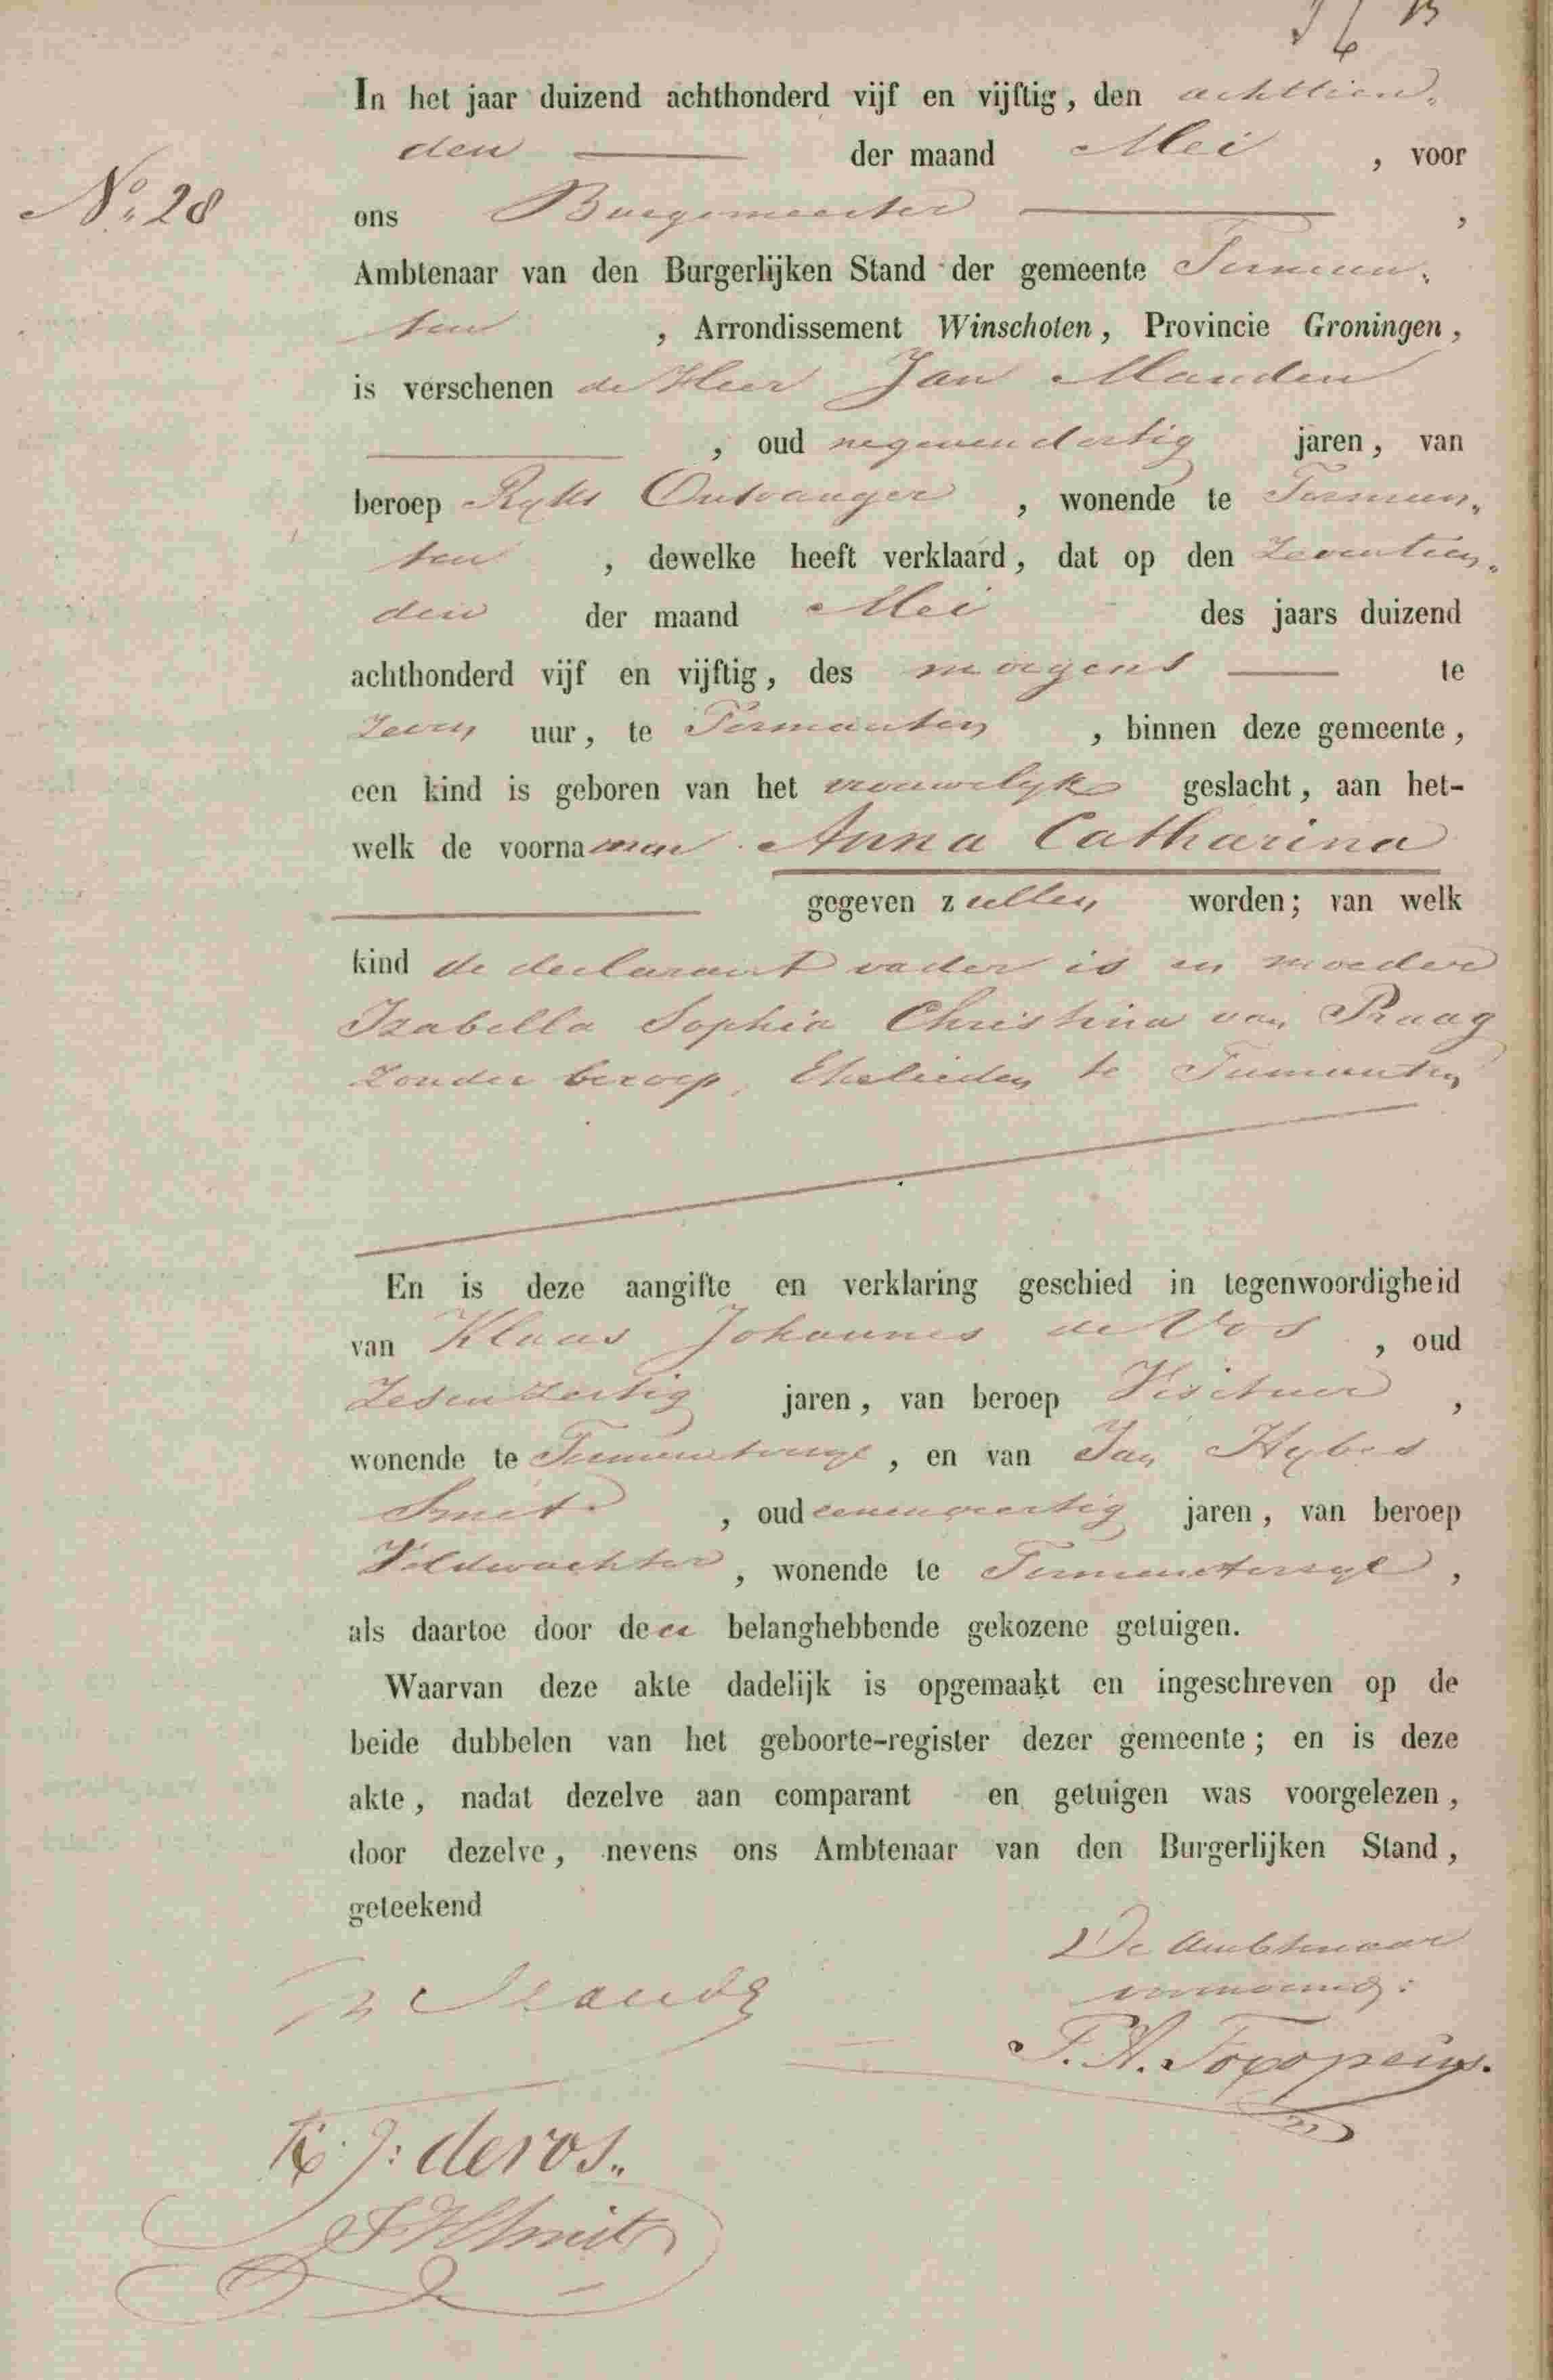 In het jaar duizend achthonderd vijf en vijftig, den achttien„
den der maand Mei , voor
No. 28
ons Burgemeester ,
Ambtenaar van den Burgerlijken Stand der gemeente Termun„
ten , Arrondissement Winschoten, Provincie Groningen,
is verschenen de Heer Jan Manden
, oud negenendertig jaren, van
beroep Ryks Ontvanger , wonende te Termun„
ten , dewelke heeft verklaard, dat op den Zeventien„
den der maand Mei des jaars duizend
achthonderd vijf en vijftig, des morgens te
Zeven uur, te Termunten , binnen deze gemeente,
een kind is geboren van het vrouwelyke geslacht, aan het-
welk de voornamen Anna Catharina
gegeven zullen worden; van welk
kind de declarant vader is en moeder
Izabella Sophia Christina van Praag
Zonder beroep, Ehelieden te Termunten
En is deze aangifte en verklaring geschied in tegenwoordigheid
van Klaas Johannes de Vos , oud
Zesendertig jaren, van beroep Visiteur ,
wonende te Termunterzyl , en van Jan Hybes
Smit , oud eenenveertig jaren, van beroep
Veldwachter , wonende te Termunterzyl ,
als daartoe door den belanghebbende gekozene getuigen.
Waarvan deze akte dadelijk is opgemaakt en ingeschreven op de
beide dubbelen van het geboorte-register dezer gemeente; en is deze
akte, nadat dezelve aan comparant en getuigen was voorgelezen,
door dezelve, nevens ons Ambtenaar van den Burgerlijken Stand,
geteekend
De Ambtenaar
voornoemd:
Manden
T. H. Toxopeus.
K. J: de vos„
J H Smit